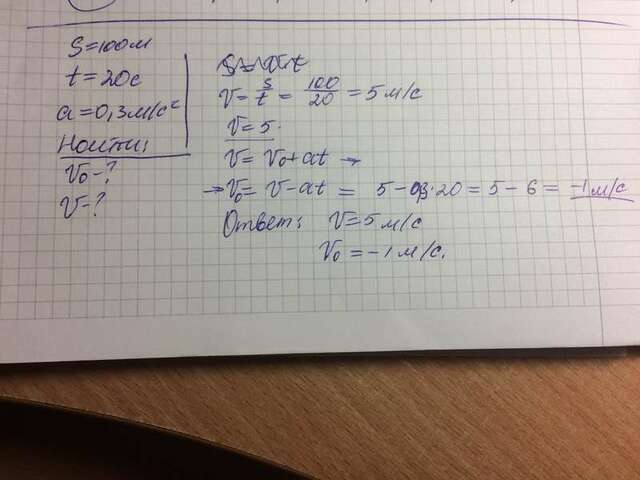 S=100м
t=20с
a=0,3м/с²
Найти:
V₀-?
V-?
V=s/t = 100/20 = 5 м/с
V=5.
V= V₀+at →
→ V₀= V-at = 5-0,3·20=5-6=-1м/с
Ответ: V=5м/с
V₀=-1м/с.